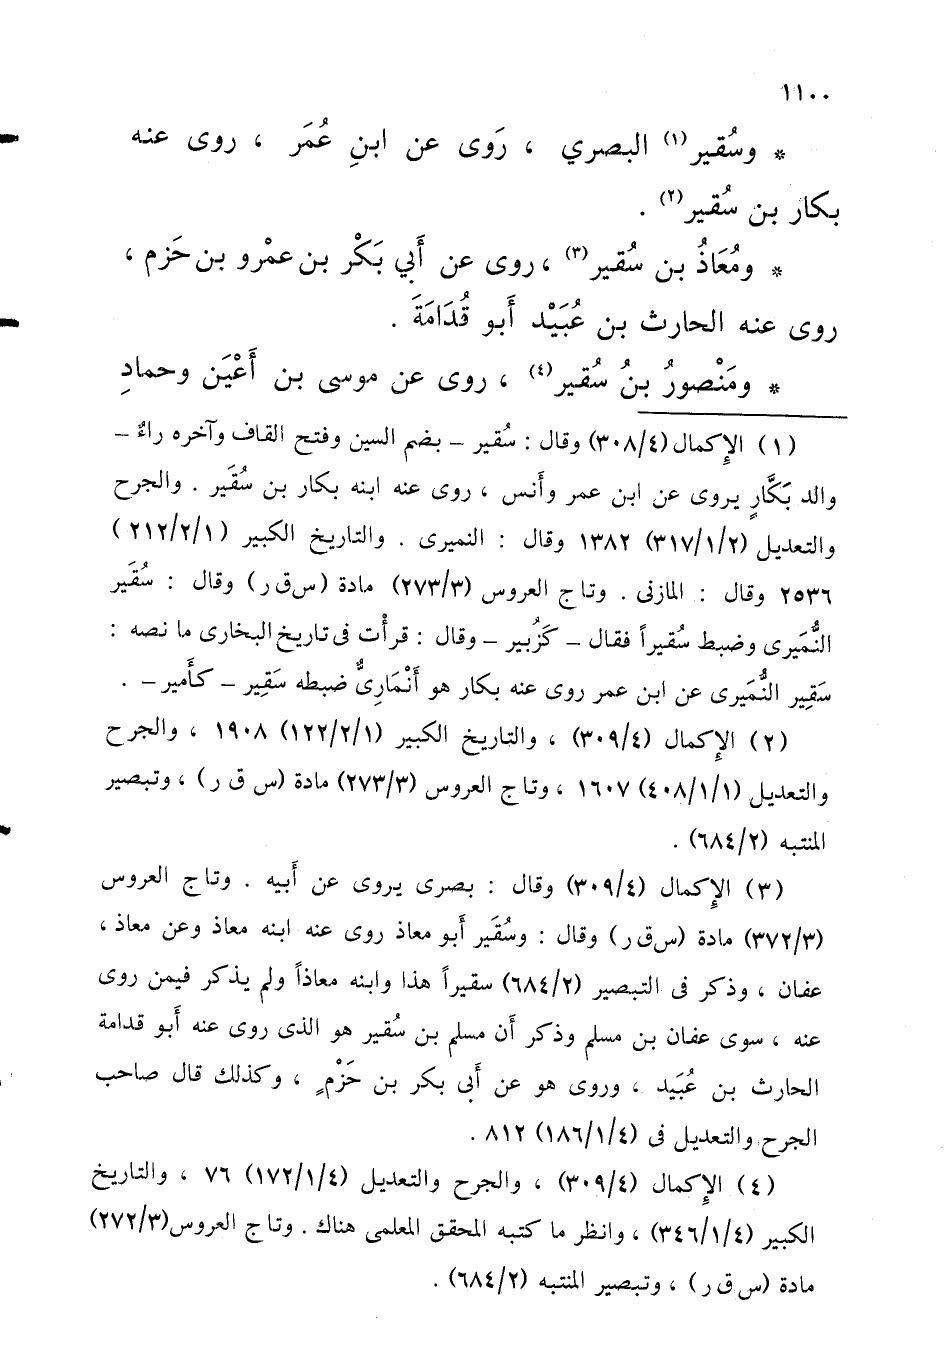 ١١٠٠
* وسُقير(١) البصري ، رَوى عن ابنِ عُمَر ، روى عنه
بكار بن سُقير(٢) .
* ومُعَاذُ بن سُقير(٣) ، روى عن أَبي بَكْر بن عمْرو بن حَزم ،
روى عنه الحارث بن عُبَيْد أَبو قُدَامَةَ .
* ومَنْصورُ بنُ سُقير(٤) ، روى عن موسى بن أَعْيَن وحمادِ
(١) الإِكمال (٣٠٨/٤) وقال : سُقير – بضم السين وفتح القاف وآخره راءٌ –
والد بَكَّارٍ يروى عن ابن عمر وأنس ، روى عنه ابنه بكار بن سُقَير . والجرح
والتعديل (٣١٧/١/٢) ١٣٨٢ وقال : النميرى . والتاريخ الكبير (٢١٢/٢/١)
٢٥٣٦ وقال : المازنى . وتاج العروس (٢٧٣/٣) مادة (س ق ر) وقال : سُقَير
النُّمَيرى وضبط سُقيراً فقال – كَزُبير – وقال : قرأْت فى تاريخ البخارى ما نصه :
سَقِير النُّمَيرى عن ابن عمر روى عنه بكار هو أَنْمَارِىٌّ ضبطه سَقِير – كأَمير – .
(٢) الإِكمال (٣٠٩/٤) ، والتاريخ الكبير (١٢٢/٢/١) ١٩٠٨ ، والجرح
والتعديل (٤٠٨/١/١) ١٦٠٧ ، وتاج العروس (٢٧٣/٣) مادة (س ق ر) ، وتبصير
المنتبه (٦٨٤/٢) .
(٣) الإِكمال (٣٠٩/٤) وقال : بصرى يروى عن أَبيه . وتاج العروس
(٣٧٢/٣) مادة (س ق ر) وقال : وسُقَير أَبو معاذ روى عنه ابنه معاذ وعن معاذ ،
عفان ، وذكر فى التبصير (٦٨٤/٢) سقيراً هذا وابنه معاذاً ولم يذكر فيمن روى
عنه ، سوى عفان بن مسلم وذكر أن مسلم بن سُقير هو الذى روى عنه أَبو قدامة
الحارث بن عُبَيد ، وروى هو عن أَبى بكر بن حَزْمٍ ، وكذلك قال صاحب
الجرح والتعديل فى (١٨٦/١/٤) ٨١٢ .
(٤) الإِكمال (٣٠٩/٤) ، والجرح والتعديل (١٧٢/١/٤) ٧٦ ، والتاريخ
الكبير (٣٤٦/١/٤) ، وانظر ما كتبه المحقق المعلمى هناك . وتاج العروس (٢٧٢/٣)
مادة (س ق ر) ، وتبصير المنتبه (٦٨٤/٢) .